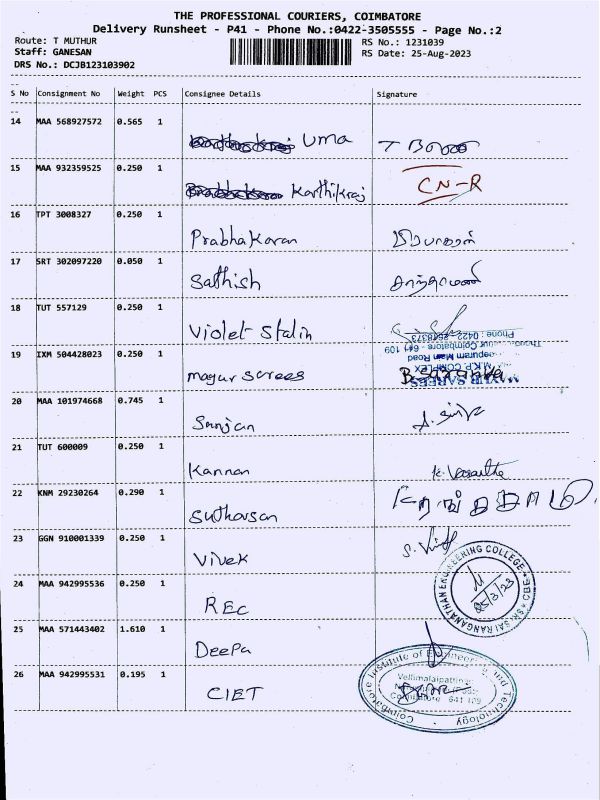 THE PROFESSIONAL COURIERS, COIMBATORE
Delivery Runsheet - P41 - Phone No.:0422-3505555 - Page No.:2
Route: T MUTHUR RS No.: 1231039
Staff: GANESAN RS Date: 25-Aug-2023
DRS No.: DCJB123103902
S No Consignment No Weight PCS Consignee Details Signature
14 MAA 568927572 0.565 1 Uma
15 MAA 932359525 0.250 1 Karthikraj CN-R
16 TPT 3008327 0.250 1 Prabhakaran பிரபாகரன்
17 SRT 302097220 0.050 1 Sathish சாந்தாமணி
18 TUT 557129 0.250 1 Violet Stalin
Phone : 0422
Coimbatore - 641 109
Main Road
19 IXM 504428023 0.250 1 mayur sarees
M.K.P. COMPLEX
MAYUR SAREES
20 MAA 101974668 0.745 1 Sanjan
21 TUT 600009 0.250 1 Kannan K. Vasantha
22 KNM 29230264 0.290 1 Sutharsan
23 GGN 910001339 0.250 1 Vivek
SRI RANGANATHAN ENGINEERING COLLEGE
24 MAA 942995536 0.250 1 REC
25 MAA 571443402 1.610 1 Deepa
26 MAA 942995531 0.195 1 CIET
Coimbatore Institute of Engineering and Technology
Vellimalaipattinam
Coimbatore 641 109